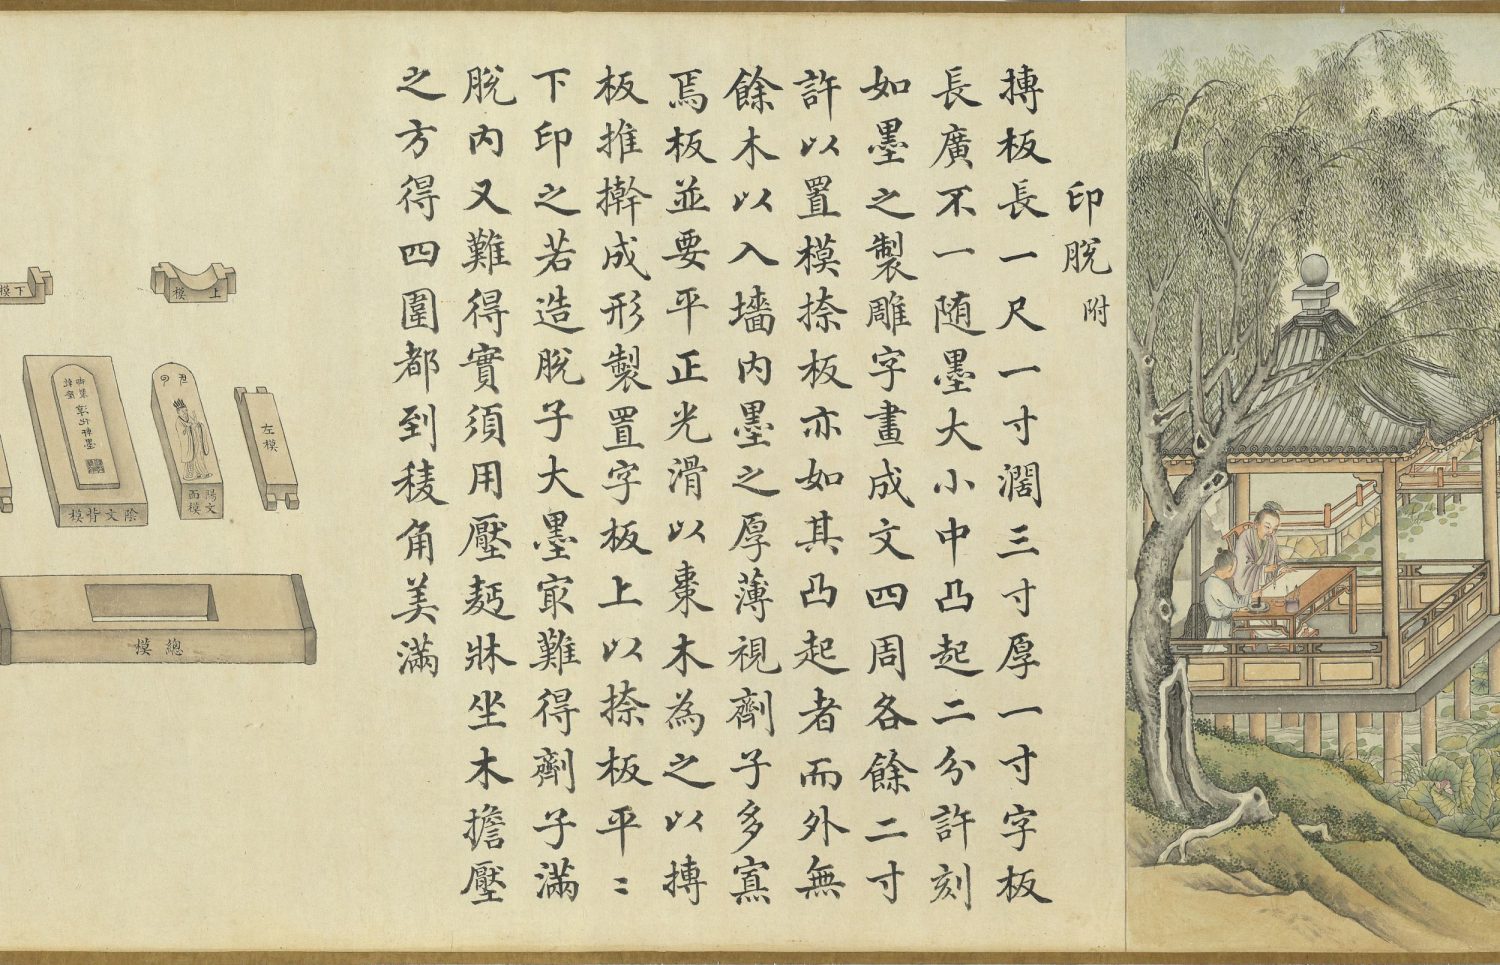 印脫附
摶板長一尺一寸濶三寸厚一寸字板
長廣不一随墨大小中凸起二分許刻
如墨之製雕字畫成文四周各餘二寸
許以置模捺板亦如其凸起者而外無
餘木以入墻内墨之厚薄視劑子多寡
焉板並要平正光滑以棗木為之以摶
板推擀成形製置字板上以捺板平〻
下印之若造脫子大墨㝡難得劑子滿
脫内又難得實須用壓麪牀坐木擔壓
之方得四圍都到稜角美滿
上模
下模
左模
陽文面模
陰文背模
總模